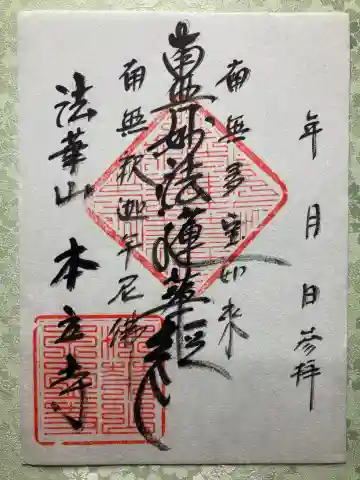 年月日参拝
南無多宝如来
南無妙法蓮華経
南無釈迦牟尼佛
法華山 本立寺